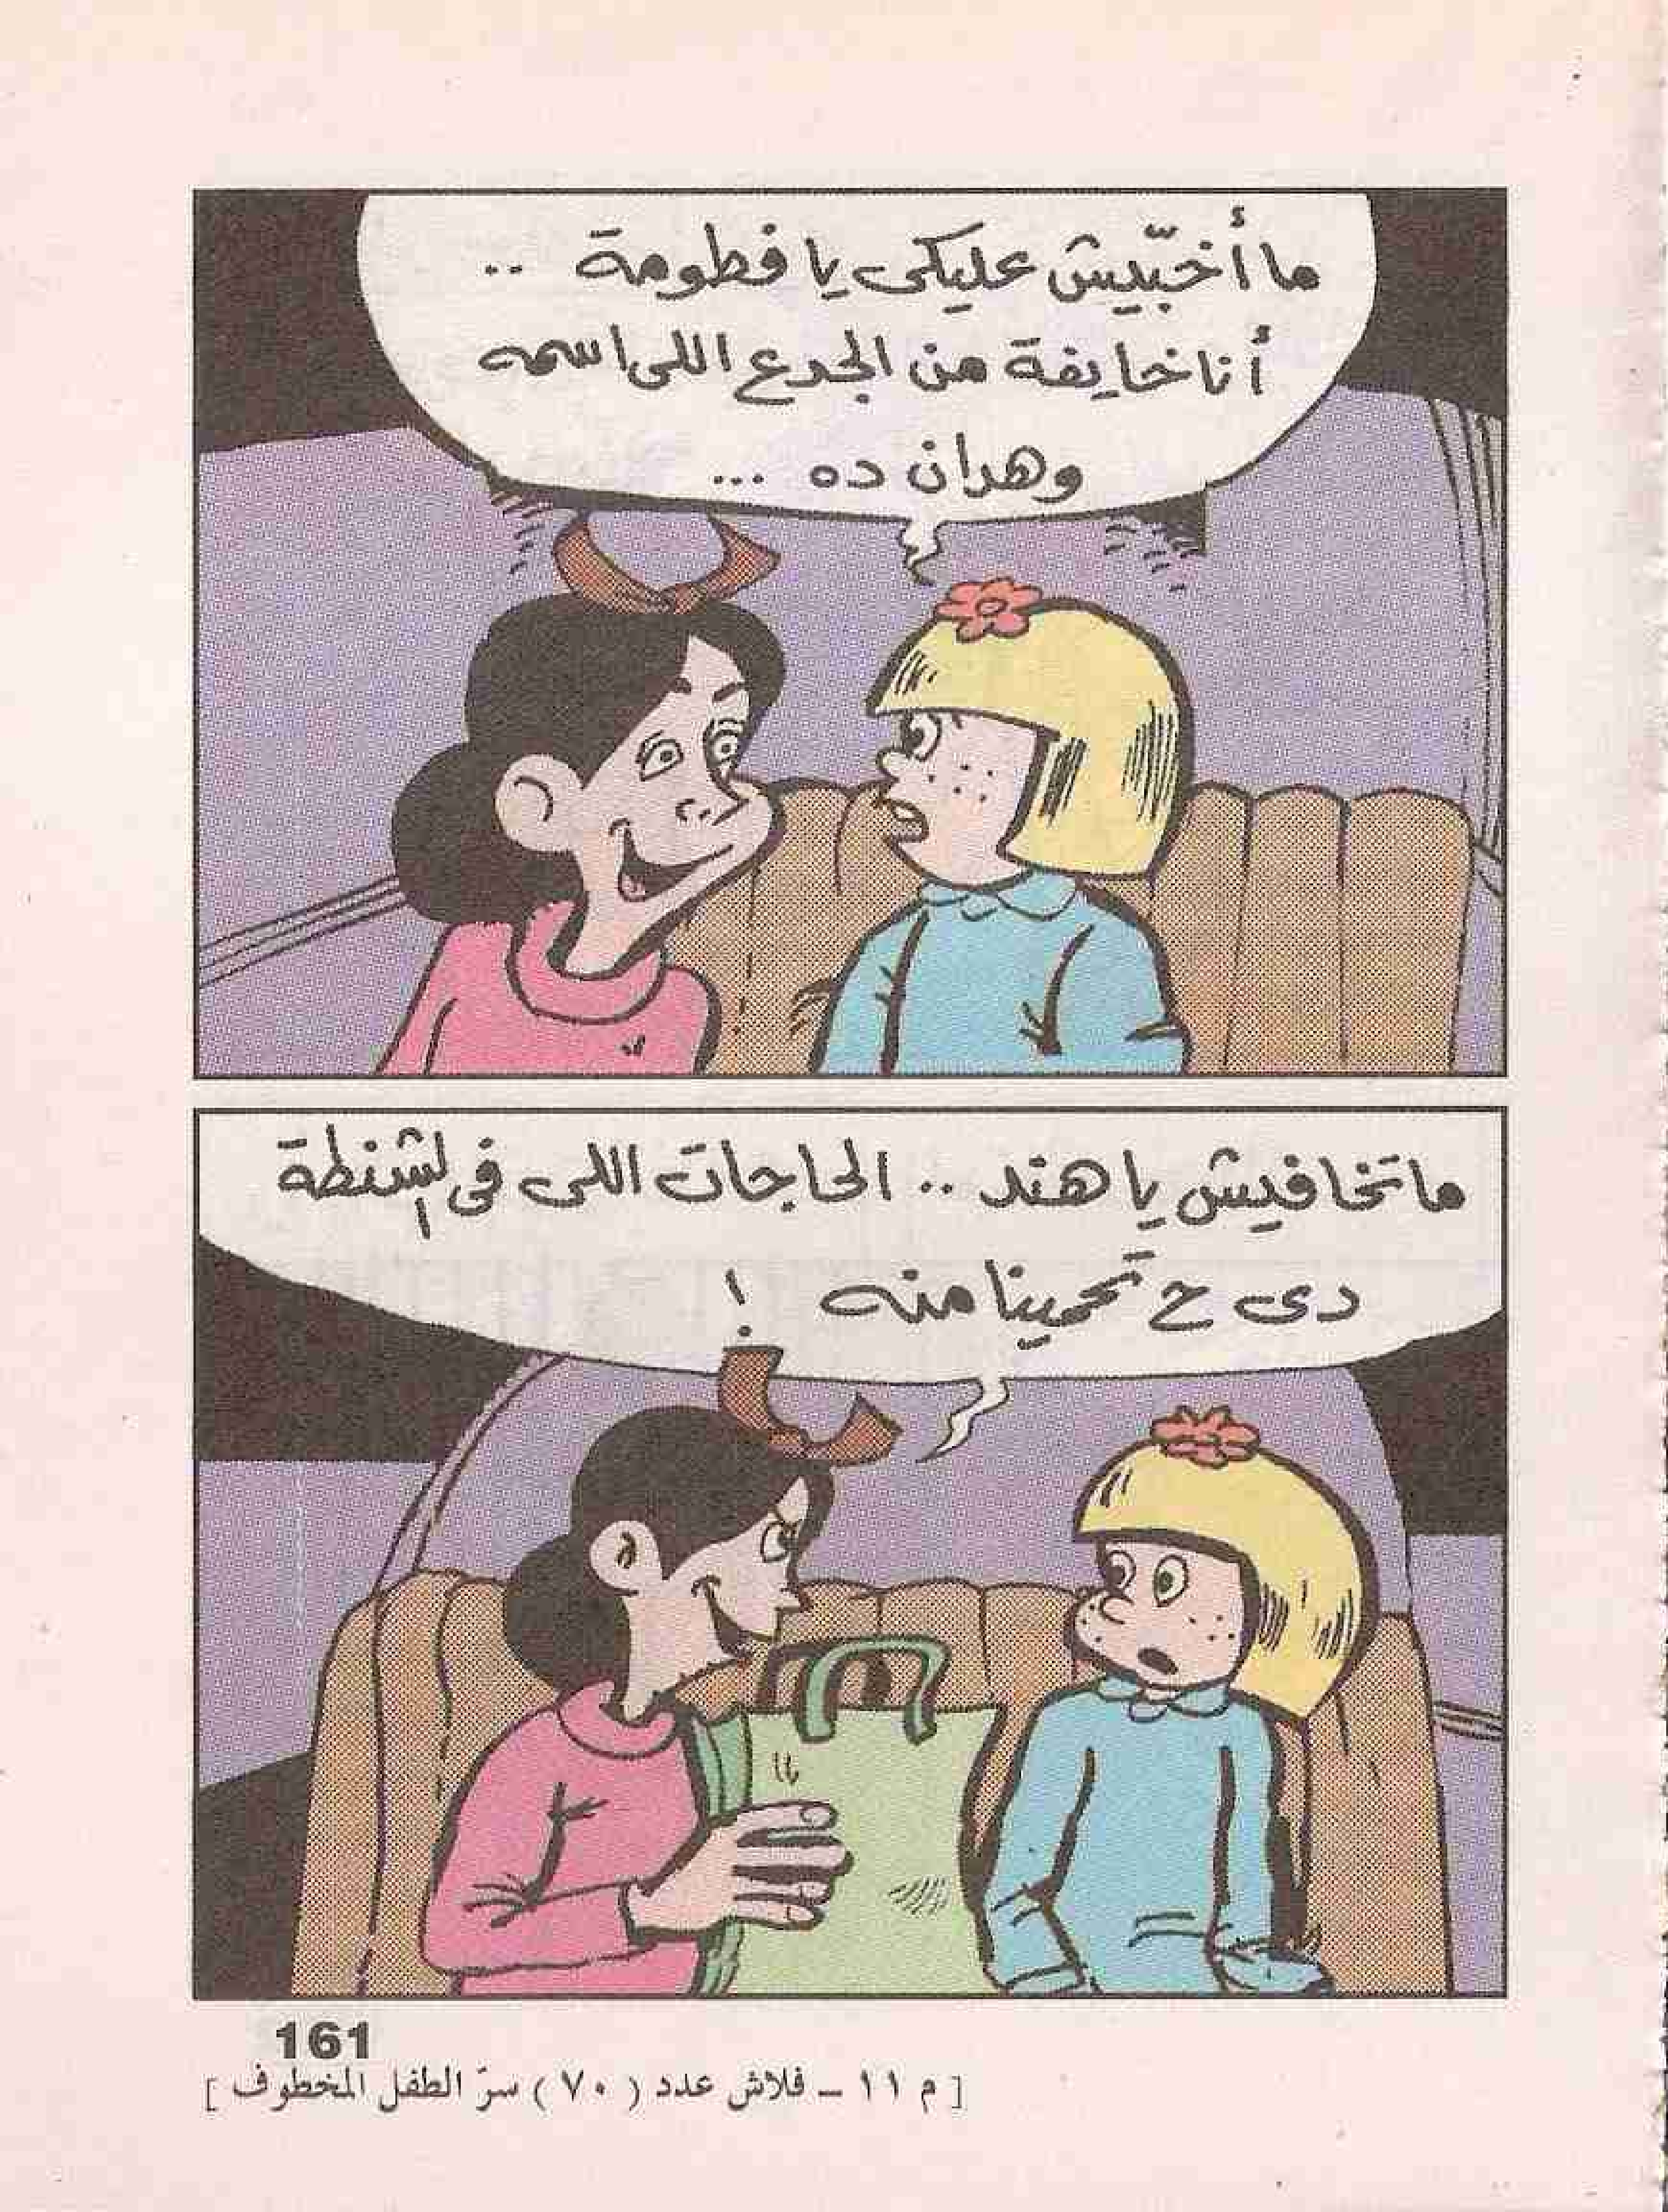 ما أخبّيش عليكى يا فطومة ..
أنا خايفة من الجدع اللى اسمه
وهدان ده ...
ما تخافيش يا هند .. الحاجات اللى فى الشنطة
دى ح تحمينا منه !
161
[ م ١١ – فلاش عدد ( ٧٠ ) سرّ الطفل المخطوف ]